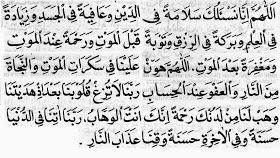 اَللّٰهُمَّ اِنَّا نَسْئَلُكَ سَلَامَةً فِى الدِّيْنِ وَعَافِيَةً فِى الْجَسَدِ وَزِيَادَةً
فِى الْعِلْمِ وَبَرَكَةً فِى الرِّزْقِ وَتَوْبَةً قَبْلَ الْمَوْتِ وَرَحْمَةً عِنْدَ الْمَوْتِ
وَمَغْفِرَةً بَعْدَ الْمَوْتِ. اَللّٰهُمَّ هَوِّنْ عَلَيْنَا فِى سَكَرَاتِ الْمَوْتِ وَالنَّجَاةَ
مِنَ النَّارِ وَالْعَفْوَ عِنْدَ الْحِسَابِ رَبَّنَا لَاتُزِغْ قُلُوْبَنَا بَعْدَ اِذْ هَدَيْتَنَا
وَهَبْ لَنَا مِنْ لَدُنْكَ رَحْمَةً اِنَّكَ اَنْتَ الْوَهَّابُ. رَبَّنَا اٰتِنَا فِى الدُّنْيَا
حَسَنَةً وَفِى اْلآخِرَةِ حَسَنَةً وَقِنَا عَذَابَ النَّارِ.